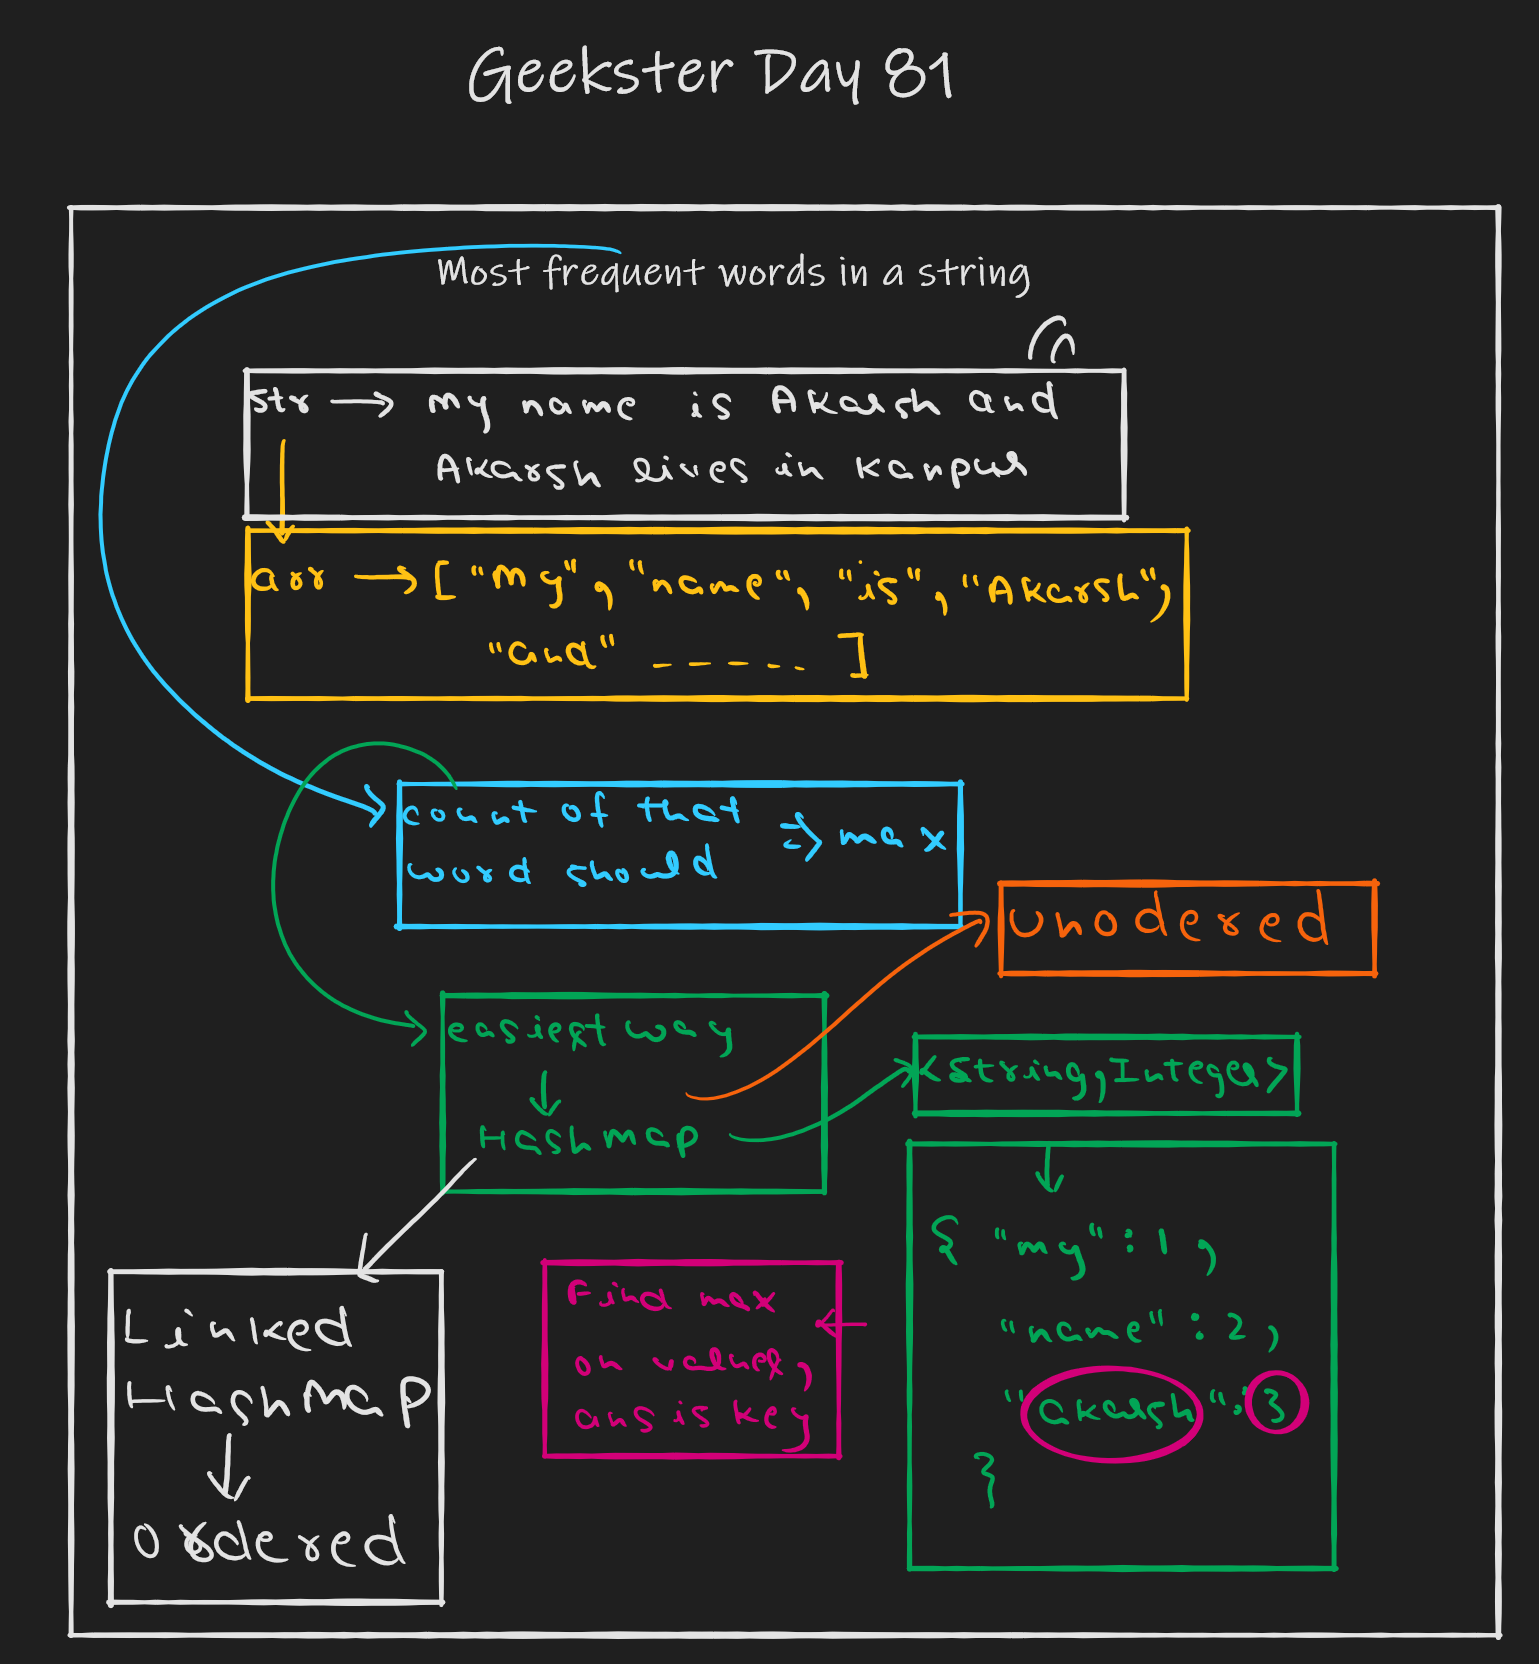 Geekster Day 81
Most frequent words in a string
str → my name is Akarsh and
Akarsh lives in kanpur
arr → ["my", "name", "is", "Akarsh",
"and" ------ ]
count of that
word should => max
unodered
easiest way
↓
Hashmap
<String, Integer>
{ "my" : 1 ,
"name" : 2 ,
"akarsh" : 3
}
Find max
on values,
ans is key
Linked
HashMap
↓
Ordered